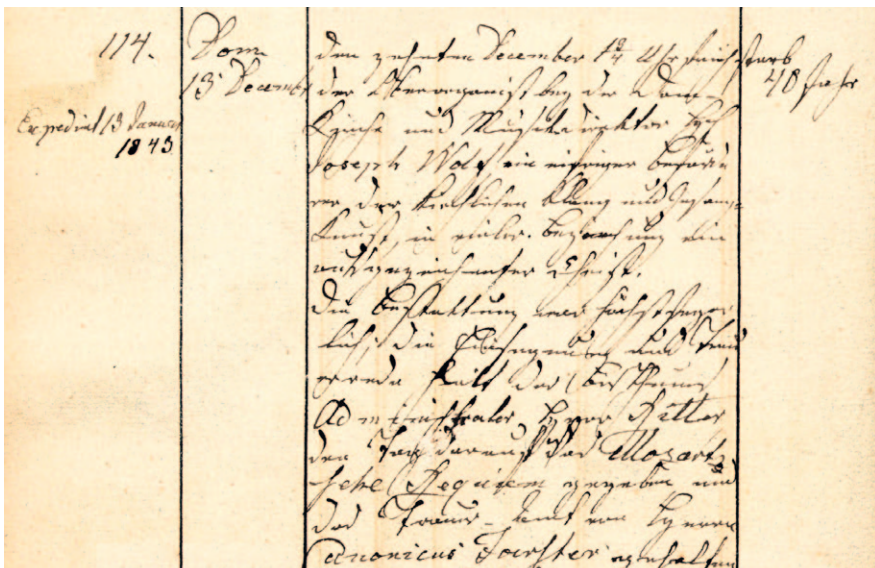 114.
Dom
13 Decembr
Expedirt 13 Januar
1843
den zehnten December 1¾ Uhr früh starb
der Oberorganist bey der Dom-
Kirche und Musikdirektor Herr
Joseph Wolf ein eifriger Beförde
rer der kirchlichen Klang und Gesang-
Kunst, in vieler Beziehung ein
ausgezeichneter Christ.
Die Bestattung war höchst feyer
lich; die Einsegnung und Trau
errede hielt der Bisthums
Administrator Herr Ritter
den Tag darauf das Mozart
sche Requiem gegeben und
das Trauer-Amt von Herrn
Canonicus Foerster gehalten
40 Jahr